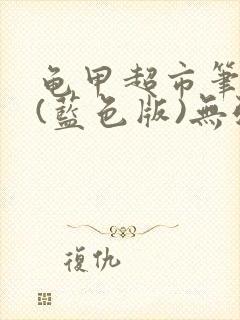 龟甲超市筆
(藍色版)無
復仇